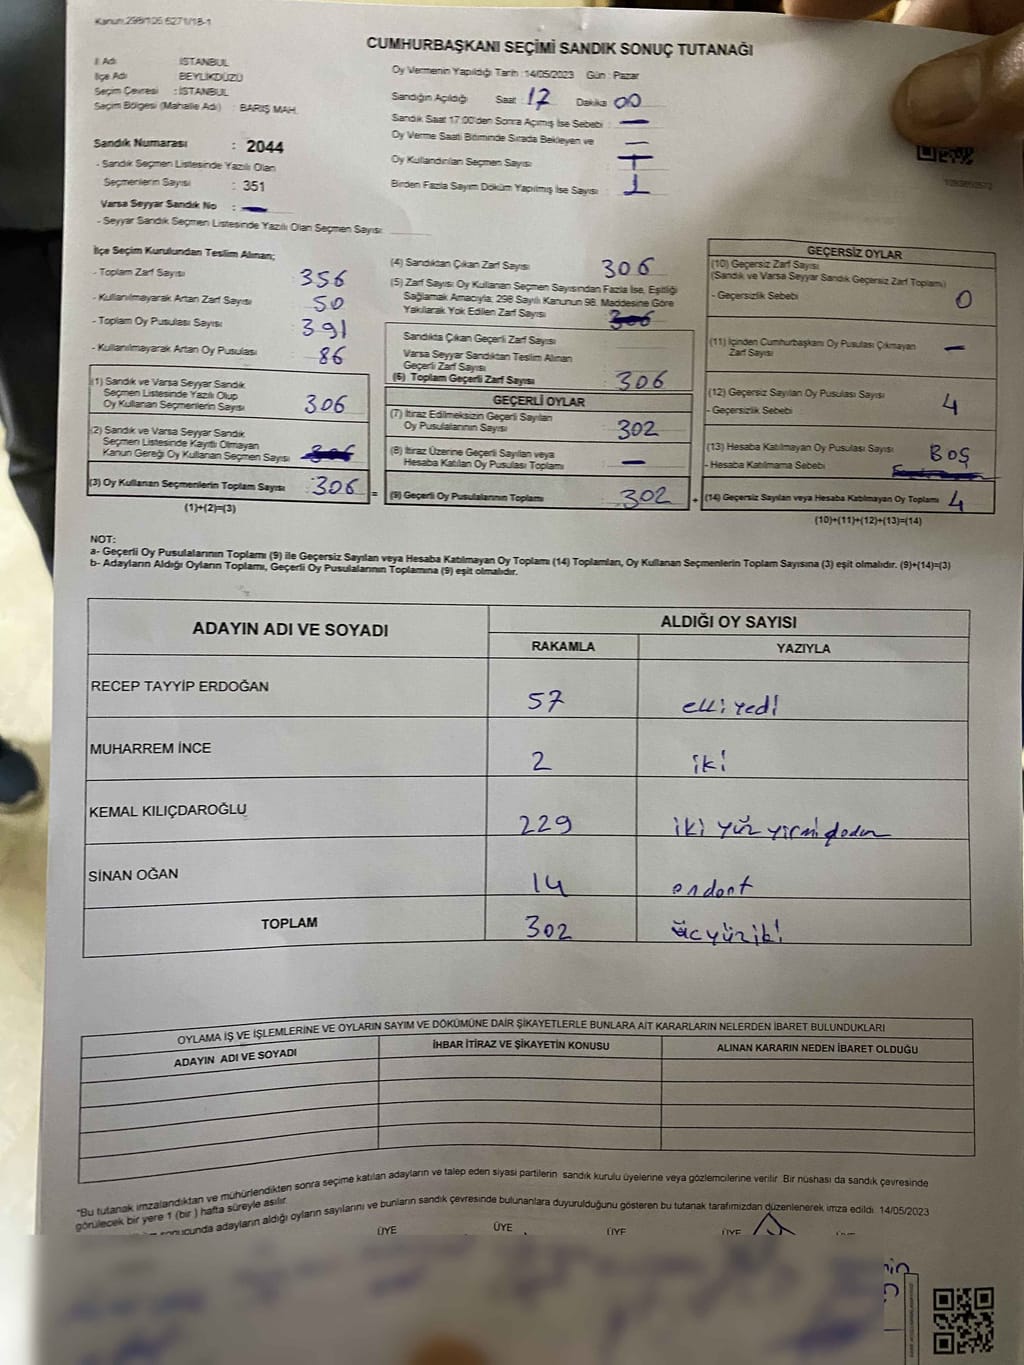 Kanun.298/105.6271/18-1
CUMHURBAŞKANI SEÇİMİ SANDIK SONUÇ TUTANAĞI
İl Adı İSTANBUL
İlçe Adı BEYLİKDÜZÜ
Seçim Çevresi : İSTANBUL
Seçim Bölgesi (Mahalle Adı) : BARIŞ MAH.
Sandık Numarası : 2044
- Sandık Seçmen Listesinde Yazılı Olan
Seçmenlerin Sayısı : 351
Varsa Seyyar Sandık No : —
- Seyyar Sandık Seçmen Listesinde Yazılı Olan Seçmen Sayısı:
Oy Vermenin Yapıldığı Tarih : 14/05/2023 Gün : Pazar
Sandığın Açıldığı Saat : 17 Dakika 00
Sandık Saat 17:00'den Sonra Açımış İse Sebebi : —
Oy Verme Saati Bitiminde Sırada Bekleyen ve
Oy Kullandırılan Seçmen Sayısı :
Birden Fazla Sayım Döküm Yapılmış İse Sayısı : 1
İlçe Seçim Kurulundan Teslim Alınan;
- Toplam Zarf Sayısı : 356
- Kullanılmayarak Artan Zarf Sayısı : 50
- Toplam Oy Pusulası Sayısı : 391
- Kullanılmayarak Artan Oy Pusulası : 86
(1) Sandık ve Varsa Seyyar Sandık
Seçmen Listesinde Yazılı Olup
Oy Kullanan Seçmenlerin Sayısı : 306
(2) Sandık ve Varsa Seyyar Sandık
Seçmen Listesinde Kayıtlı Olmayan
Kanun Gereği Oy Kullanan Seçmen Sayısı : 306
(3) Oy Kullanan Seçmenlerin Toplam Sayısı : 306 =
(1)+(2)=(3)
(4) Sandıktan Çıkan Zarf Sayısı : 306
(5) Zarf Sayısı Oy Kullanan Seçmen Sayısından Fazla İse, Eşitliği
Sağlamak Amacıyla, 298 Sayılı Kanunun 98. Maddesine Göre
Yakılarak Yok Edilen Zarf Sayısı : 306
Sandıkta Çıkan Geçerli Zarf Sayısı :
Varsa Seyyar Sandıktan Teslim Alınan
Geçerli Zarf Sayısı :
(6) Toplam Geçerli Zarf Sayısı : 306
GEÇERLİ OYLAR
(7) İtiraz Edilmeksizin Geçerli Sayılan
Oy Pusulalarının Sayısı : 302
(8) İtiraz Üzerine Geçerli Sayılan veya
Hesaba Katılan Oy Pusulası Toplamı : —
(9) Geçerli Oy Pusulalarının Toplamı : 302 +
GEÇERSİZ OYLAR
(10) Geçersiz Zarf Sayısı
(Sandık ve Varsa Seyyar Sandık Geçersiz Zarf Toplamı)
- Geçersizlik Sebebi : 0
(11) İçinden Cumhurbaşkanı Oy Pusulası Çıkmayan
Zarf Sayısı : —
(12) Geçersiz Sayılan Oy Pusulası Sayısı : 4
- Geçersizlik Sebebi
(13) Hesaba Katılmayan Oy Pusulası Sayısı : BOŞ
- Hesaba Katılmama Sebebi
(14) Geçersiz Sayılan veya Hesaba Katılmayan Oy Toplamı : 4
(10)+(11)+(12)+(13)=(14)
NOT:
a- Geçerli Oy Pusulalarının Toplamı (9) ile Geçersiz Sayılan veya Hesaba Katılmayan Oy Toplamı (14) Toplamları, Oy Kullanan Seçmenlerin Toplam Sayısına (3) eşit olmalıdır. (9)+(14)=(3)
b- Adayların Aldığı Oyların Toplamı, Geçerli Oy Pusulalarının Toplamına (9) eşit olmalıdır.
ADAYIN ADI VE SOYADI ALDIĞI OY SAYISI
RAKAMLA YAZIYLA
RECEP TAYYİP ERDOĞAN 57 elli yedi
MUHARREM İNCE 2 iki
KEMAL KILIÇDAROĞLU 229 iki yüz yirmi dokuz
SİNAN OĞAN 14 ondört
TOPLAM 302 üçyüziki
OYLAMA İŞ VE İŞLEMLERİNE VE OYLARIN SAYIM VE DÖKÜMÜNE DAİR ŞİKAYETLERLE BUNLARA AİT KARARLARIN NELERDEN İBARET BULUNDUKLARI
ADAYIN ADI VE SOYADI İHBAR İTİRAZ VE ŞİKAYETİN KONUSU ALINAN KARARIN NEDEN İBARET OLDUĞU
"Bu tutanak imzalandıktan ve mühürlendikten sonra seçime katılan adayların ve talep eden siyasi partilerin sandık kurulu üyelerine veya gözlemcilerine verilir. Bir nüshası da sandık çevresinde
görülecek bir yere 1 (bir ) hafta süreyle asılır.
sonucunda adayların aldığı oyların sayılarını ve bunların sandık çevresinde bulunanlara duyurulduğunu gösteren bu tutanak tarafımızdan düzenlenerek imza edildi. 14/05/2023
ÜYE ÜYE ÜYE ÜYE ÜYE